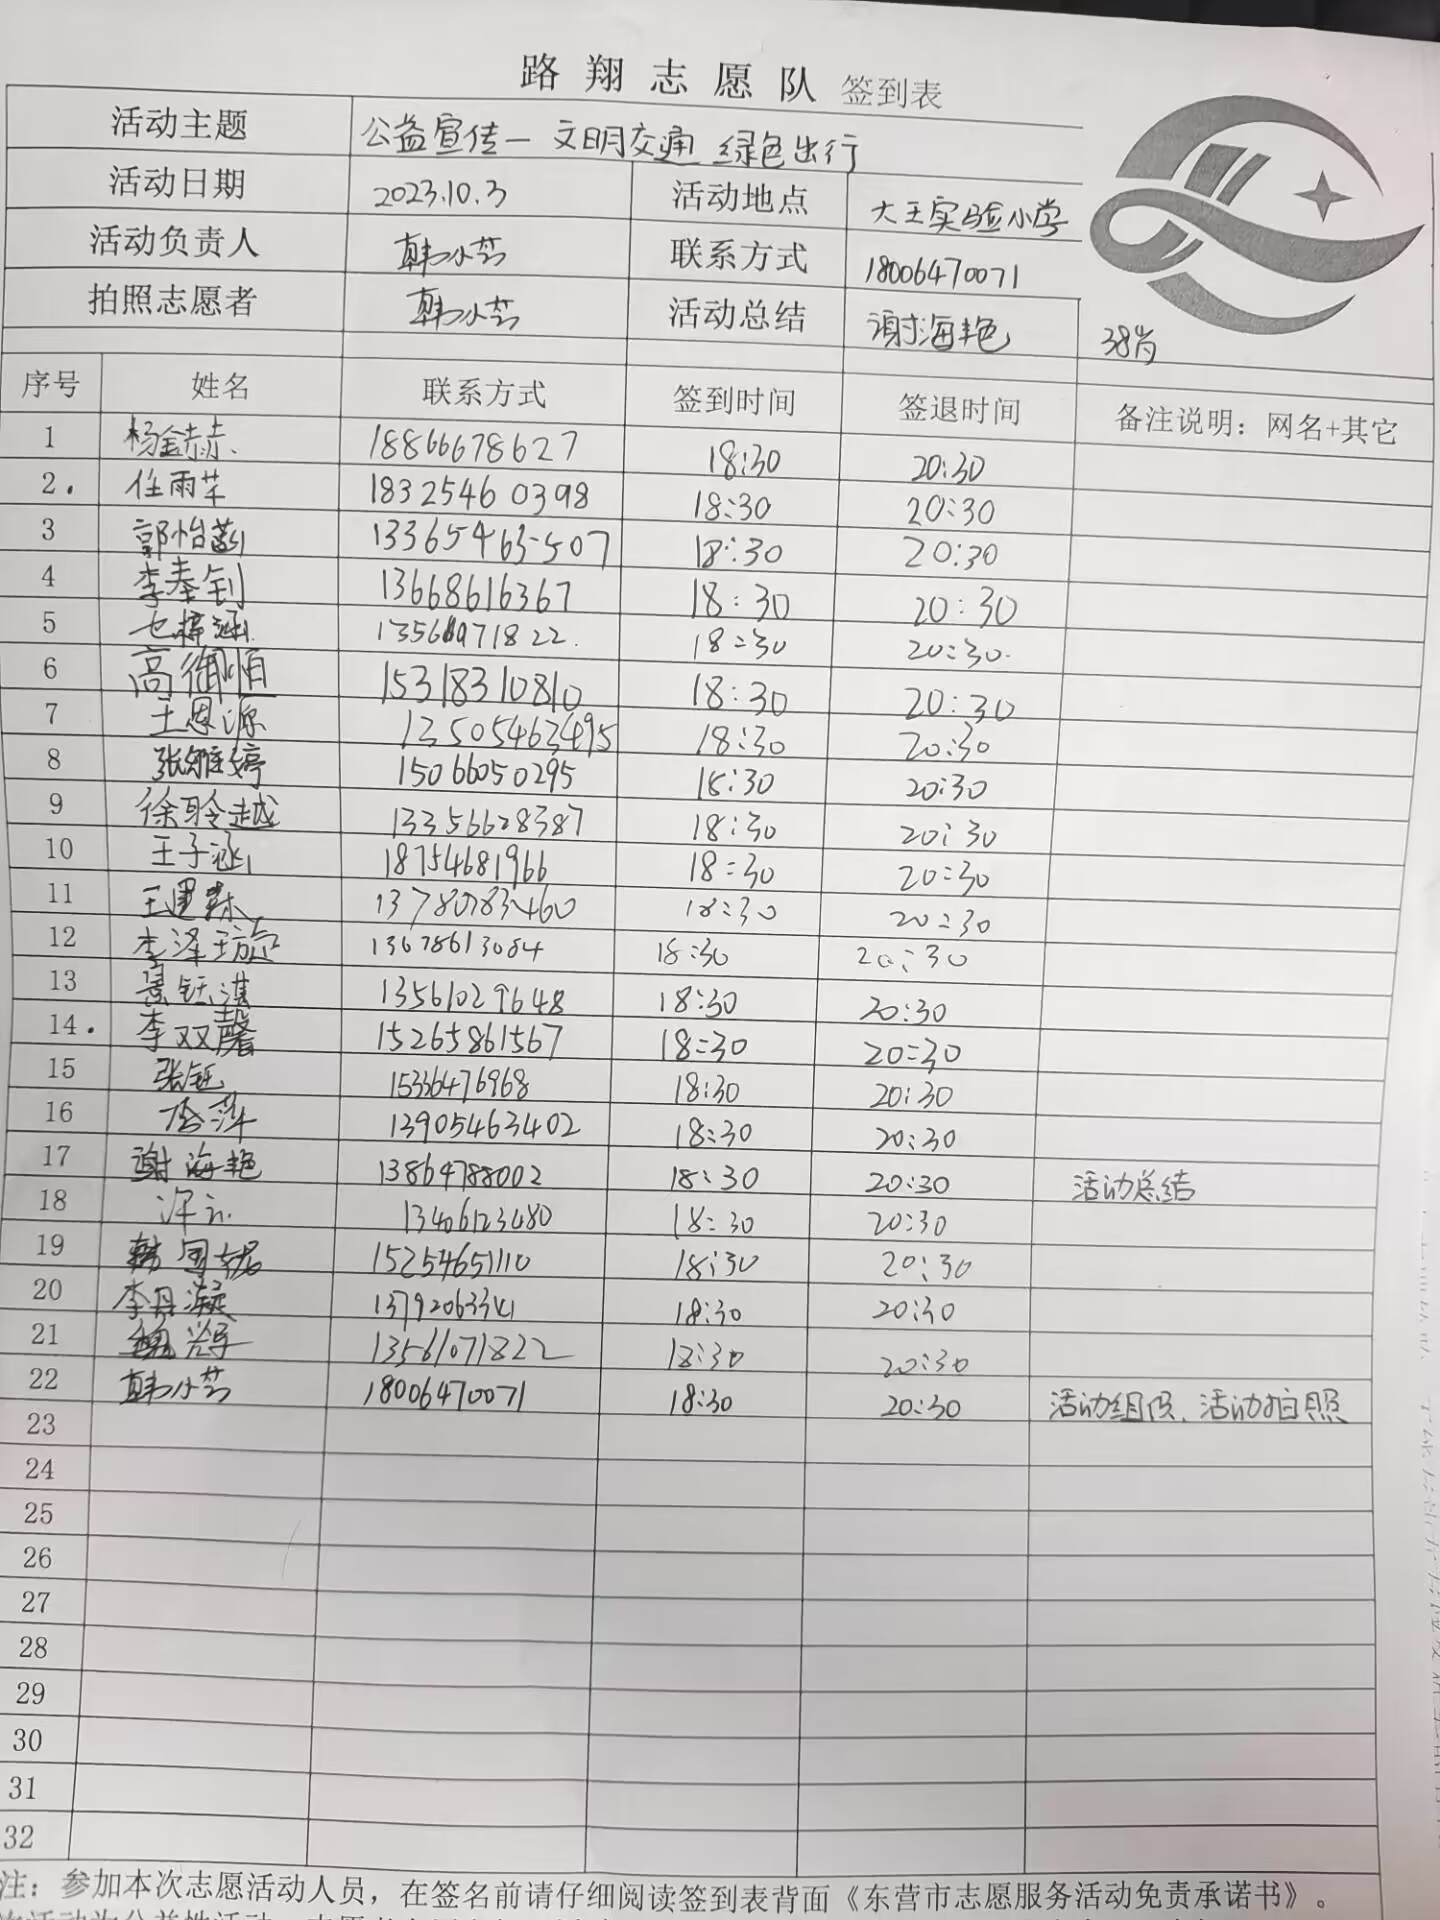 路翔志愿队 签到表
活动主题 公益宣传— 文明交通 绿色出行
活动日期 2023.10.3 活动地点 大王实验小学
活动负责人 韩小芸 联系方式 18006470071
拍照志愿者 韩小芸 活动总结 谢海艳 38岁
序号 姓名 联系方式 签到时间 签退时间 备注说明：网名+其它
1 杨金赫 18866678627 18:30 20:30
2. 任雨芊 18325460398 18:30 20:30
3 郭怡 13365463507 18:30 20:30
4 李奉钊 13668616367 18:30 20:30
5 七梓涵 18:30 20:30
6 高御恒 15318310810 18:30 20:30
7 王恩源 13505463495 18:30 20:30
8 张雅婷 15066050295 18:30 20:30
9 徐聆越 13356628387 18:30 20:30
10 王子涵 18754681966 18:30 20:30
11 王建 18:30 20:30
12 李泽 13678613084 18:30 20:30
13 景钰淇 13561029648 18:30 20:30
14. 李双馨 15265861567 18:30 20:30
15 张钰 15336476968 18:30 20:30
16 萍 13905463402 18:30 20:30
17 谢海艳 13864788002 18:30 20:30 活动总结
18 13406123480 18:30 20:30
19 韩国 15254651110 18:30 20:30
20 李丹凝 18:30 20:30
21 13561071822 18:30 20:30
22 韩小芸 18006470071 18:30 20:30 活动组织、活动拍照
23
24
25
26
27
28
29
30
31
32
注：参加本次志愿活动人员，在签名前请仔细阅读签到表背面《东营市志愿服务活动免责承诺书》。